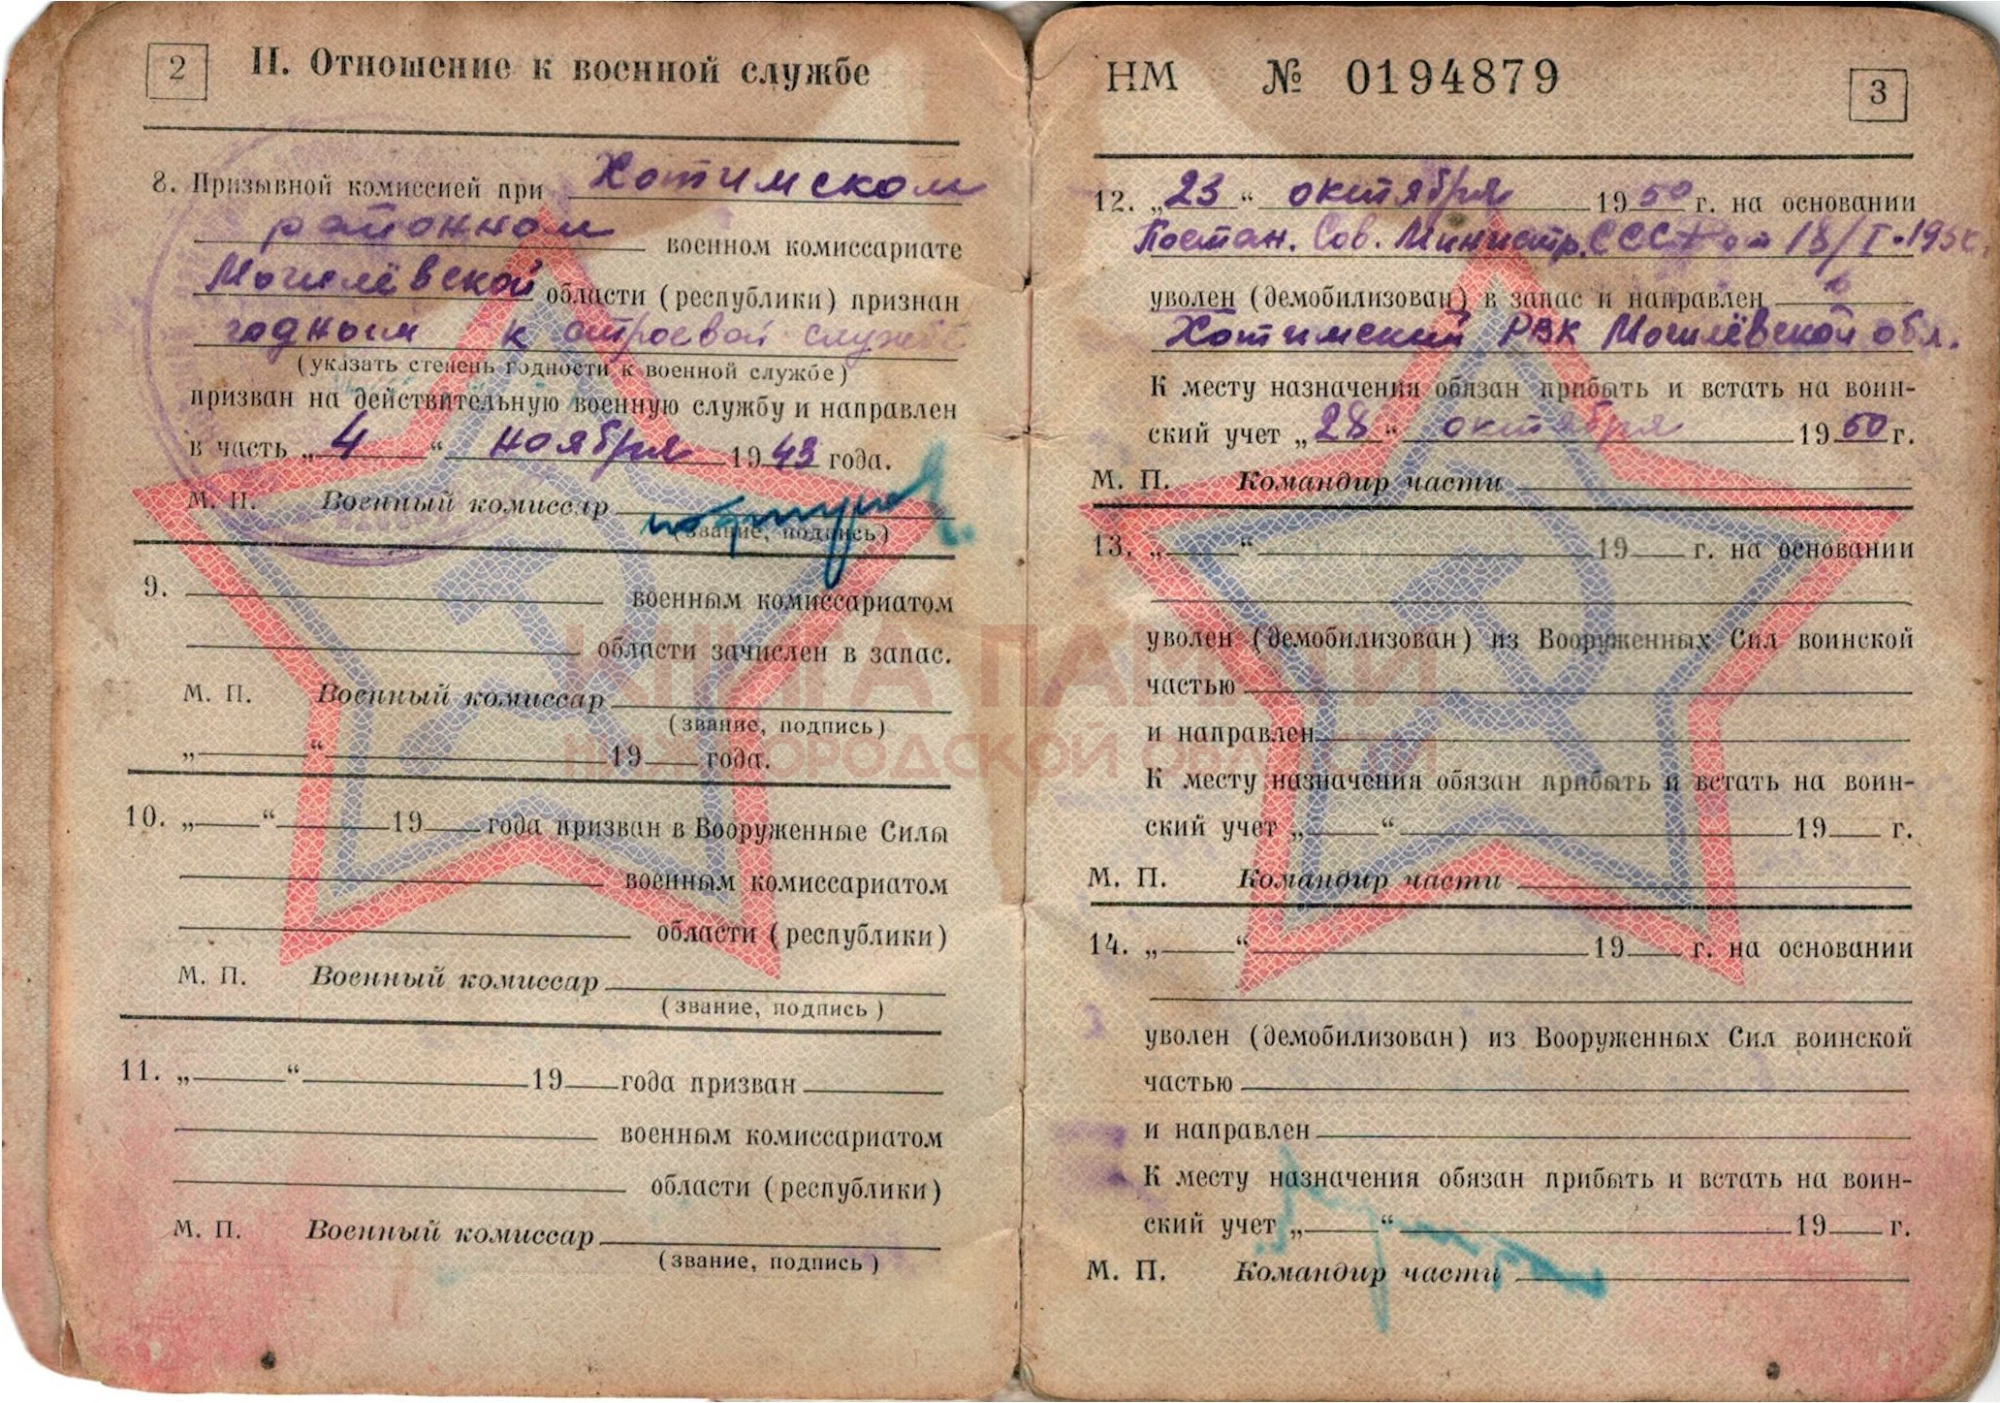 2
II. Отношение к военной службе
8. Призывной комиссией при Хотимском
районном военном комиссариате
Могилёвской области (республики) признан
годным к строевой службе
(указать степень годности к военной службе)
призван на действительную военную службу и направлен
в часть „4“ ноября 1943 года.
М. П. Военный комиссар
(звание, подпись)
9. военным комиссариатом
области зачислен в запас.
М. П. Военный комиссар
(звание, подпись)
„ “ 19 года.
10. „ “ 19 года призван в Вооруженные Силы
военным комиссариатом
области (республики)
М. П. Военный комиссар
(звание, подпись)
11. „ “ 19 года призван
военным комиссариатом
области (республики)
М. П. Военный комиссар
(звание, подпись)
НМ № 0194879
3
12. „23“ октября 1950 г. на основании
Постан. Сов. Министр. СССР от 18/I-195
уволен (демобилизован) в запас и направлен в
Хотимский РВК Могилёвской обл.
К месту назначения обязан прибыть и встать на воин-
ский учет „28“ октября 1950 г.
М. П. Командир части
13. „ “ 19 г. на основании
уволен (демобилизован) из Вооруженных Сил воинской
частью
и направлен
К месту назначения обязан прибыть и встать на воин-
ский учет „ “ 19 г.
М. П. Командир части
14. „ “ 19 г. на основании
уволен (демобилизован) из Вооруженных Сил воинской
частью
и направлен
К месту назначения обязан прибыть и встать на воин-
ский учет „ “ 19 г.
М. П. Командир части
КНИГА ПАМЯТИ
НИЖЕГОРОДСКОЙ ОБЛАСТИ